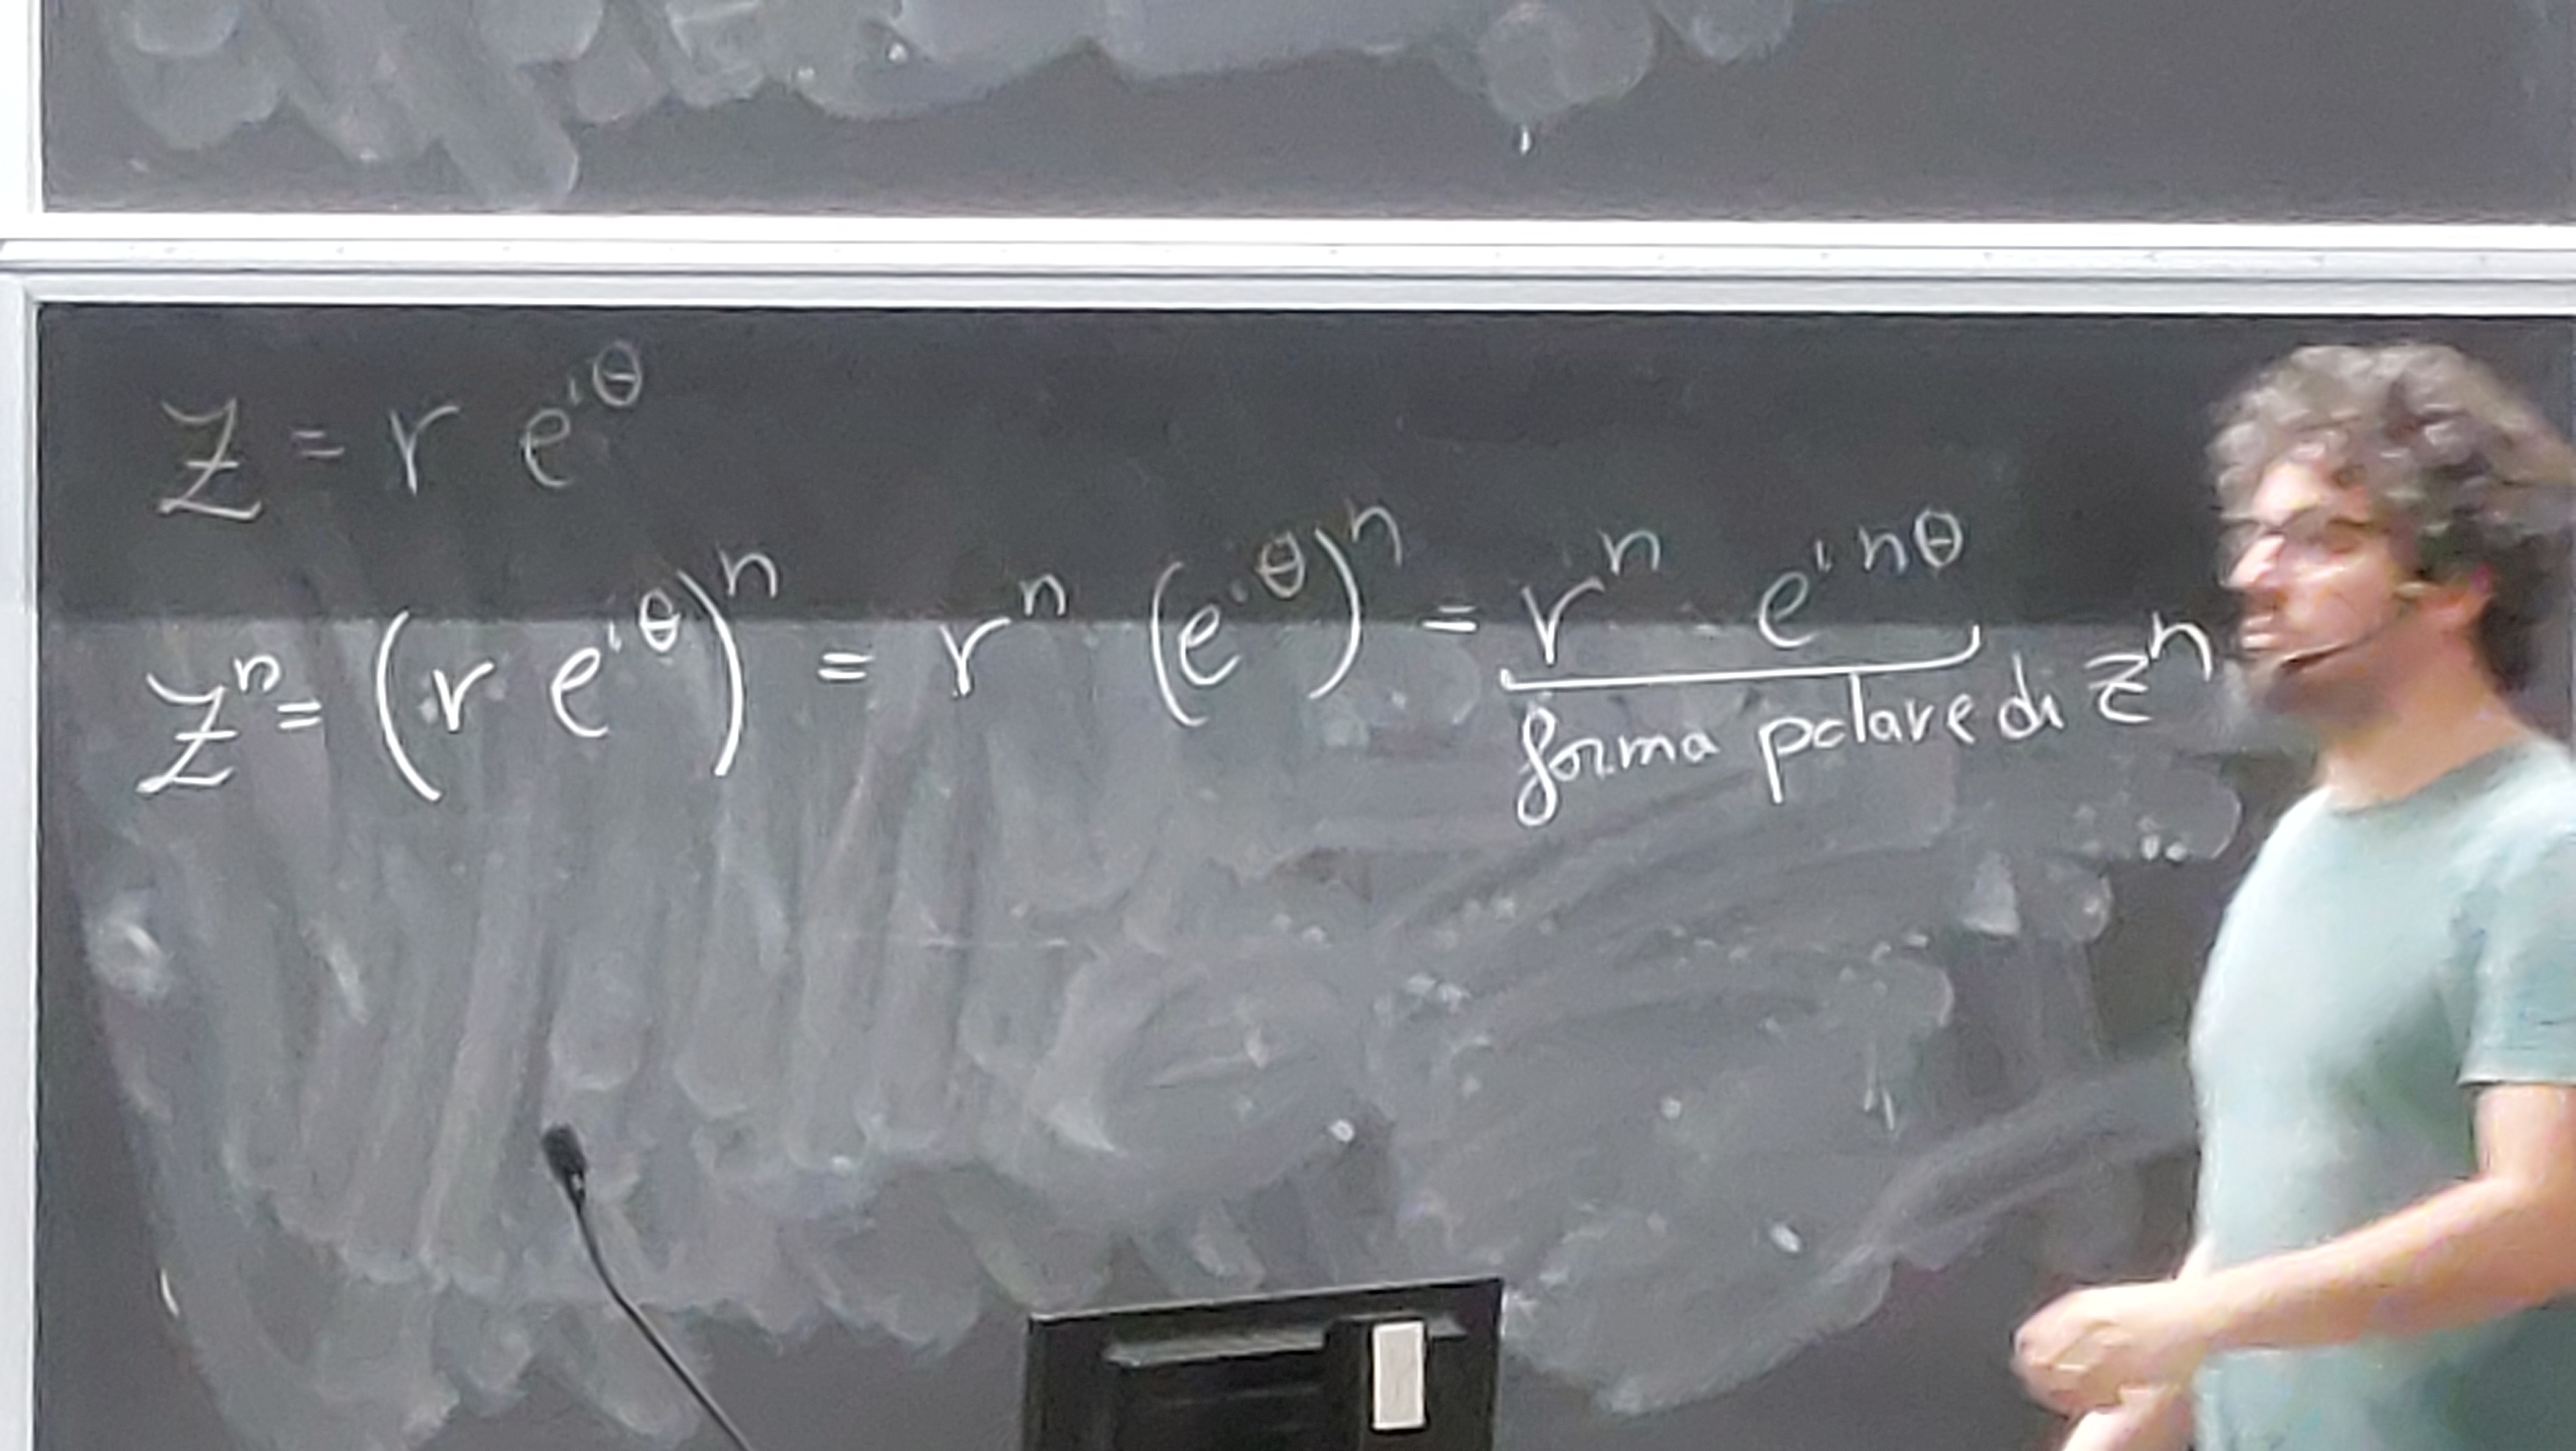 z = r e^{iθ}
z^n = (r e^{iθ})^n = r^n (e^{iθ})^n = r^n e^{inθ}
forma polare di z^n